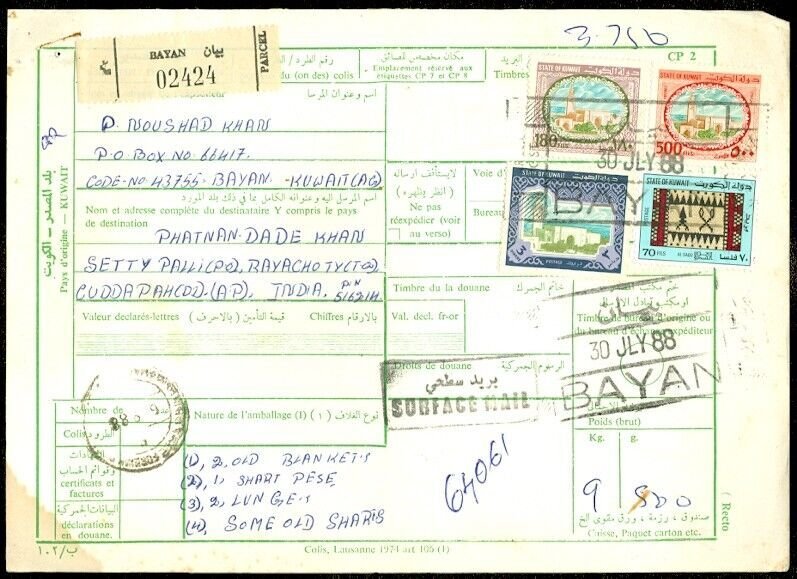 3.750
BAYAN بيان
02424
PARCEL
رقم الطرد
du (on des) colis
مكان مخصص لملصاق
Emplacement réservé aux
étiquettes CP 7 et CP 8
البريد
Timbres
CP 2
اسم وعنوان المرسل
P. NOUSHAD KHAN
P.O BOX NO. 66417.
CODE-NO. 43755-BAYAN-KUWAIT (AG)
بلد المصدر - الكويت
Pays d'origine — KUWAIT
اسم المرسل اليه وعنوانه الكامل بما في ذلك بلد المورد
Nom et adresse complète du destinataire Y compris le pays
de destination
PHATNAN-DADE KHAN
SETTY PALLI(PO), RAYACHOTY(TQ)
CUDDAPAH(DI).(AP), INDIA. PIN
لايستأنف ارساله
(أنظر وظهره)
Ne pas
réexpédier (voir
au verso)
Voie d'
Bureau
STATE OF KUWAIT دولة الكويت
180
STATE OF KUWAIT دولة الكويت
500 ٥٠٠
30 JLY 88
BAYAN
STATE OF KUWAIT دولة الكويت
70 FILS AL SADU ٧٠ فلسا
Valeur déclarés-letters (بالاحرف) قيمة التأمين Chiffres بالارقام
Timbre du douane خاتم الجمرك
Val. décl. fr-or
ختم مكتب المصدر
او مكتب تبادل الارسال
Timbre du bureau d'origine ou
du bureau d'échange expéditeur
بيان
30 JLY 88
BAYAN
Droits de douane الرسوم الجمركية
بريد سطحي
SURFACE MAIL
Nombre de
Colis الطرود
certificats et
factures
البيانات الجمركية
déclarations en
douane.
Nature de l'amballage (I) (١) نوع الغلاف
(1), 2, OLD BLANKETS
(2), 1, SHART PESE
(3), 2, LUNGE.S
(4), SOME OLD SHARTS
64061
Poids (brut)
Kg. g.
9 500
صندوق ، رزمة ، ورق مقوى الخ
Caisse, Paquet carton etc.
(Recto
١٠٢/ب
Colis, Lausanne 1974 art 106 (1)